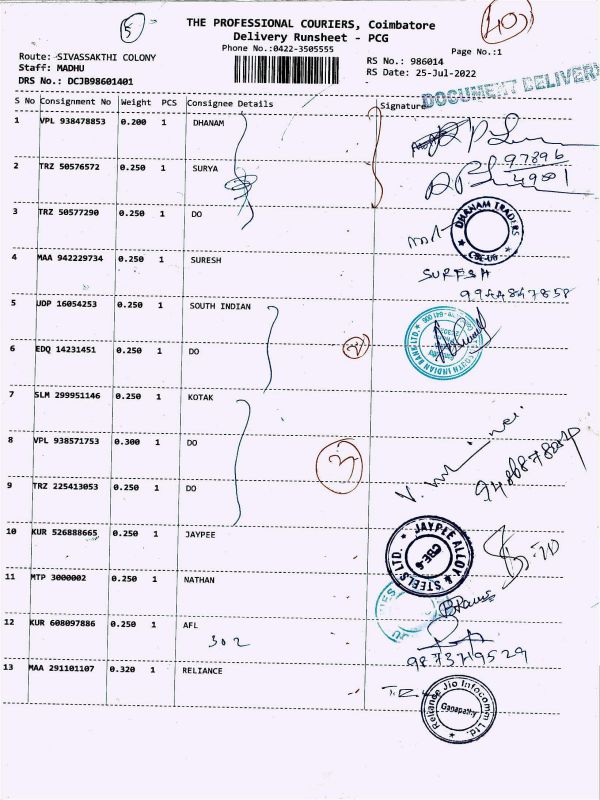 5
40
THE PROFESSIONAL COURIERS, Coimbatore
Delivery Runsheet - PCG
Phone No.:0422-3505555
Page No.:1
Route: SIVASSAKTHI COLONY
RS No.: 986014
Staff: MADHU
RS Date: 25-Jul-2022
DRS No.: DCJB98601401
DOCUMENT DELIVERY
S No Consignment No Weight PCS Consignee Details Signature
1 VPL 938478853 0.200 1 DHANAM
97896
49801
2 TRZ 50576572 0.250 1 SURYA
3 TRZ 50577290 0.250 1 DO
DHANAM TRADERS
4 MAA 942229734 0.250 1 SURESH
SURESH
9944847858
5 UDP 16054253 0.250 1 SOUTH INDIAN
SOUTH INDIAN BANK LTD.
6 EDQ 14231451 0.250 1 DO
2
7 SLM 299951146 0.250 1 KOTAK
8 VPL 938571753 0.300 1 DO
3
9 TRZ 225413053 0.250 1 DO
10 KUR 526888665 0.250 1 JAYPEE
JAYPEE ALLOY & STEELS LTD.
CBE-6
11 MTP 3000002 0.250 1 NATHAN
12 KUR 608097886 0.250 1 AFL
302
9873719529
13 MAA 291101107 0.320 1 RELIANCE
Reliance Jio Infocomm Ltd.
Ganapathy